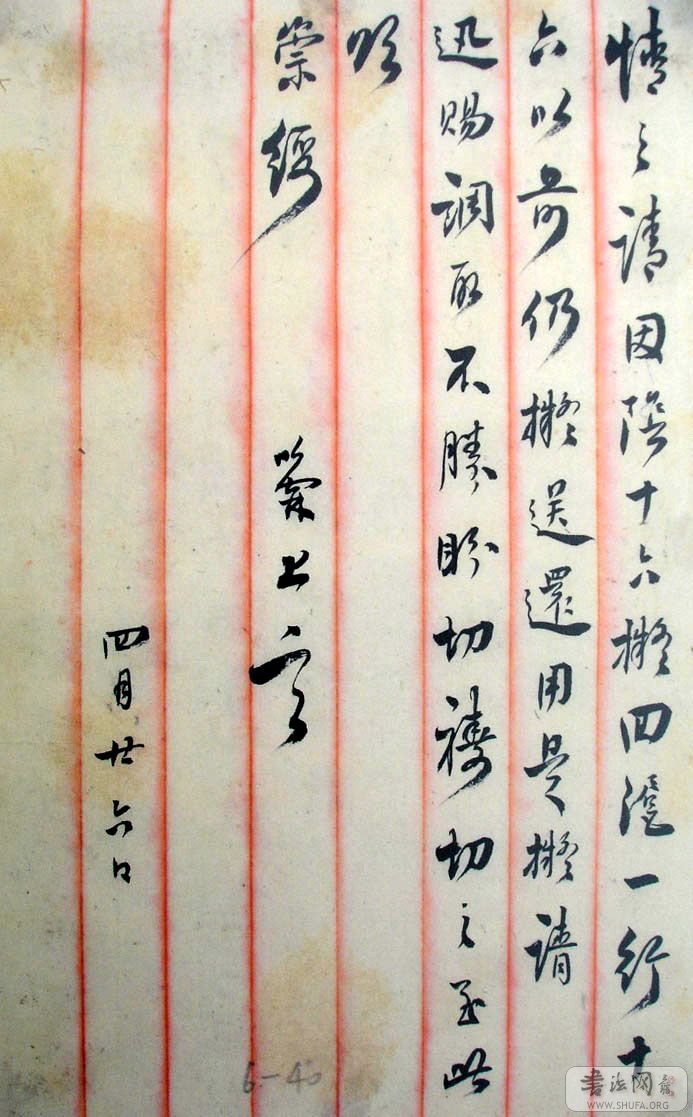 情之請因陰十六擬回滬一行十
六以前仍擬送還用是擬請
迅賜調取不勝盼切禱切之至此
頌
崇綏 上言
四月廿六日
6-40
書法网
WWW.SHUFA.ORG